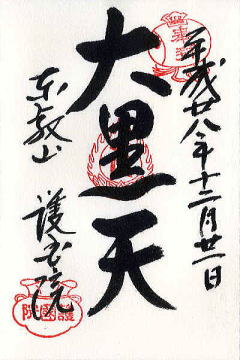 平成廿八年十二月廿一日
大黒天
東叡山
護国院